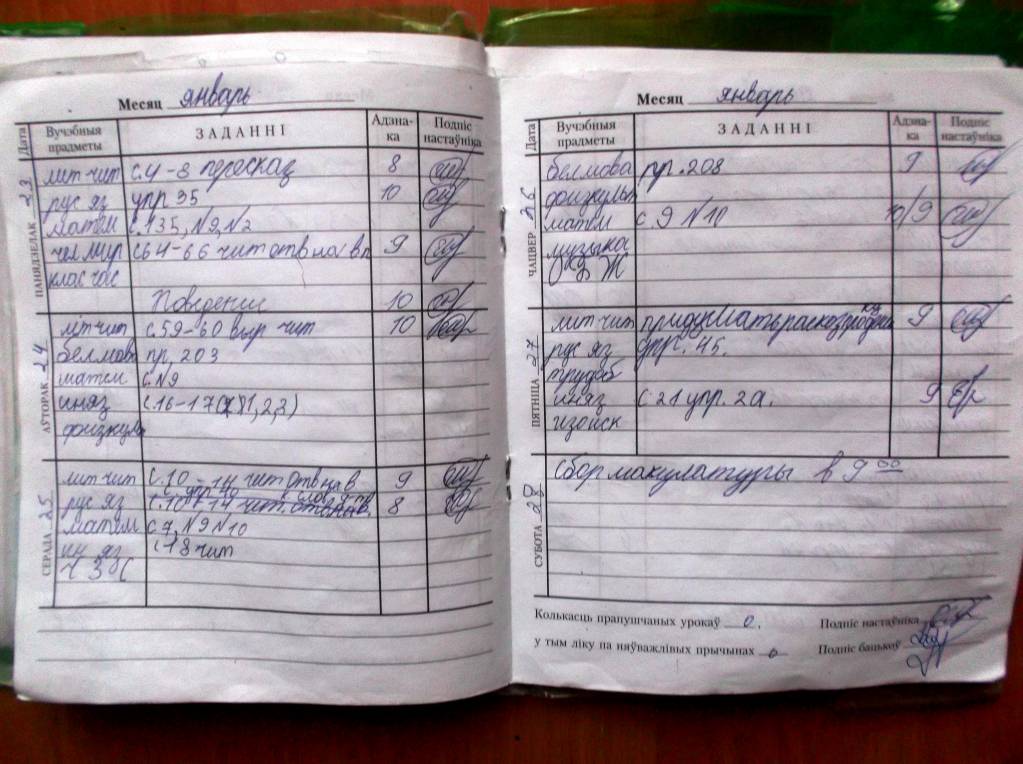 Месяц январь
Дата Вучэбныя прадметы ЗАДАННІ Адзна-ка Подпіс настаўніка
ПАНЯДЗЕЛАК 23
лит чит с.4-8 пересказ 8
рус яз упр 35 10
матем с.135, №9, №2
чел мир с64-66 чит отв на вп 9
клас час
Поведение 10
АЎТОРАК 24
лит чит с.59-60 выр чит 10
бел мова пр. 203
матем с. №9
ин яз с.16-17
физкуль
СЕРАДА 25
лит чит с.10-14 чит отв на в 9
с упр 40
рус яз с.10-14 чит. отв на в. 8
матем с 7, №9 №10
ин яз с 18 чит
Месяц январь
Дата Вучэбныя прадметы ЗАДАННІ Адзна-ка Подпіс настаўніка
ЧАЦВЕР 26
бел мова пр. 208 9
физкульт
матем с. 9 №10 10/9
музыка
ОБЖ
ПЯТНІЦА 27
лит чит придумать 9
рус яз упр. 45.
труд об
ин яз с 21 упр. 2а. 9
изо иск
СУБОТА 28
сбор макулатуры в 9 00
Колькасць прапушчаных урокаў 0, Подпіс настаўніка
у тым ліку па няўважлівых прычынах 0 Подпіс бацькоў